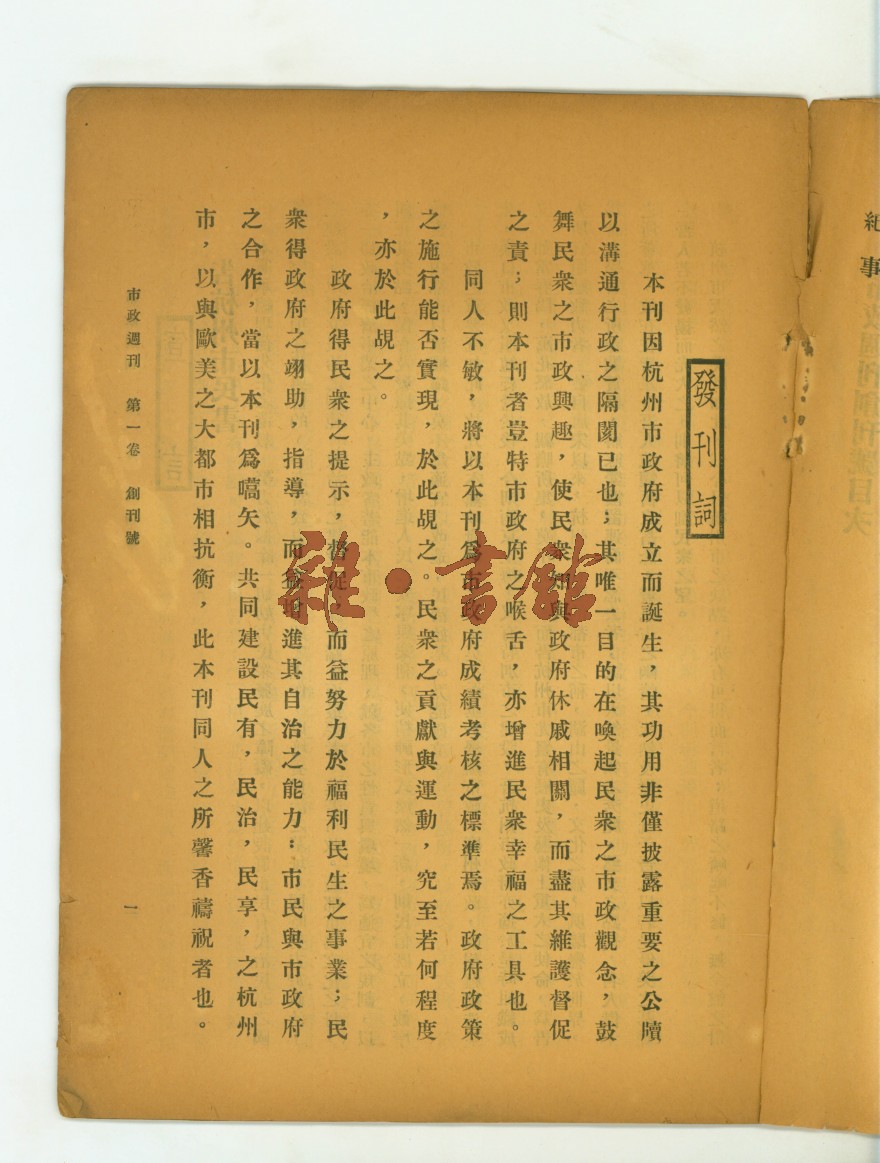 紀事
發刊詞
本刊因杭州市政府成立而誕生，其功用非僅披露重要之公牘
以溝通行政之隔閡已也；其唯一目的在喚起民衆之市政觀念，鼓
舞民衆之市政興趣，使民衆知與政府休戚相關，而盡其維護督促
之責；則本刊者豈特市政府之喉舌，亦增進民衆幸福之工具也。
同人不敏，將以本刊爲市政府成績考核之標準焉。政府政策
之施行能否實現，於此覘之。民衆之貢獻與運動，究至若何程度
，亦於此覘之。
政府得民衆之提示，督促，而益努力於福利民生之事業；民
衆得政府之翊助，指導，而益增進其自治之能力：市民與市政府
之合作，當以本刊爲嚆矢。共同建設民有，民治，民享，之杭州
市，以與歐美之大都市相抗衡，此本刊同人之所馨香禱祝者也。
市政週刊　第一卷　創刊號
一
雜·書館